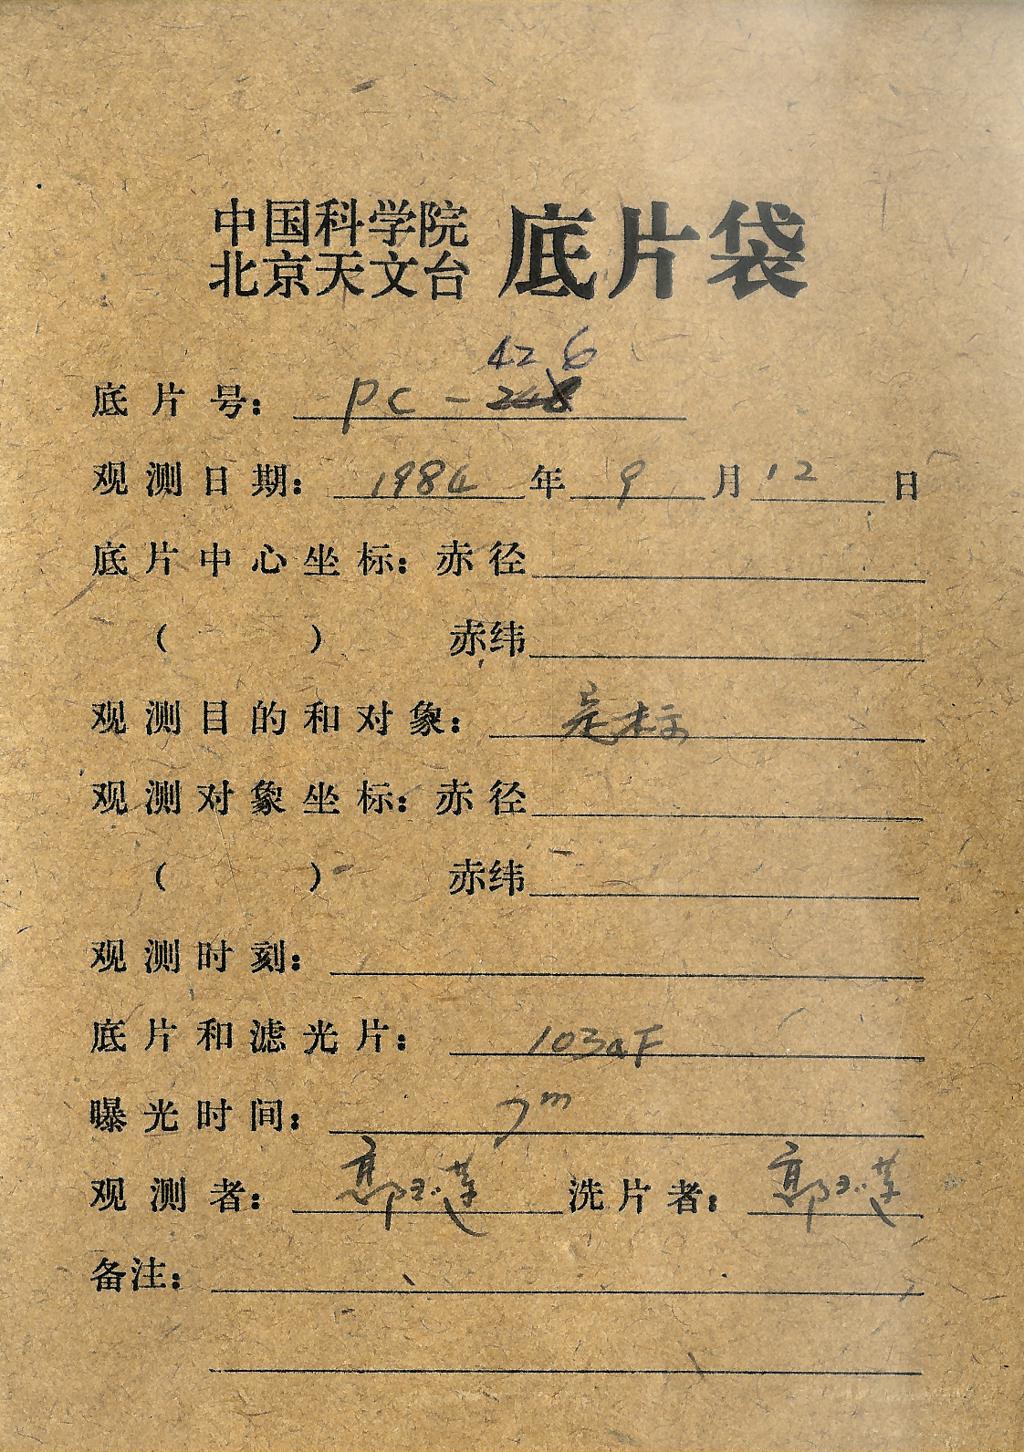 中国科学院
北京天文台 底片袋
426
底片号: PC-248
观测日期: 1984年9月12日
底片中心坐标: 赤径
( ) 赤纬
观测目的和对象: 定标
观测对象坐标: 赤径
( ) 赤纬
观测时刻:
底片和滤光片: 103aF
曝光时间: 7m
观测者: 郭玉莲 洗片者: 郭玉莲
备注: